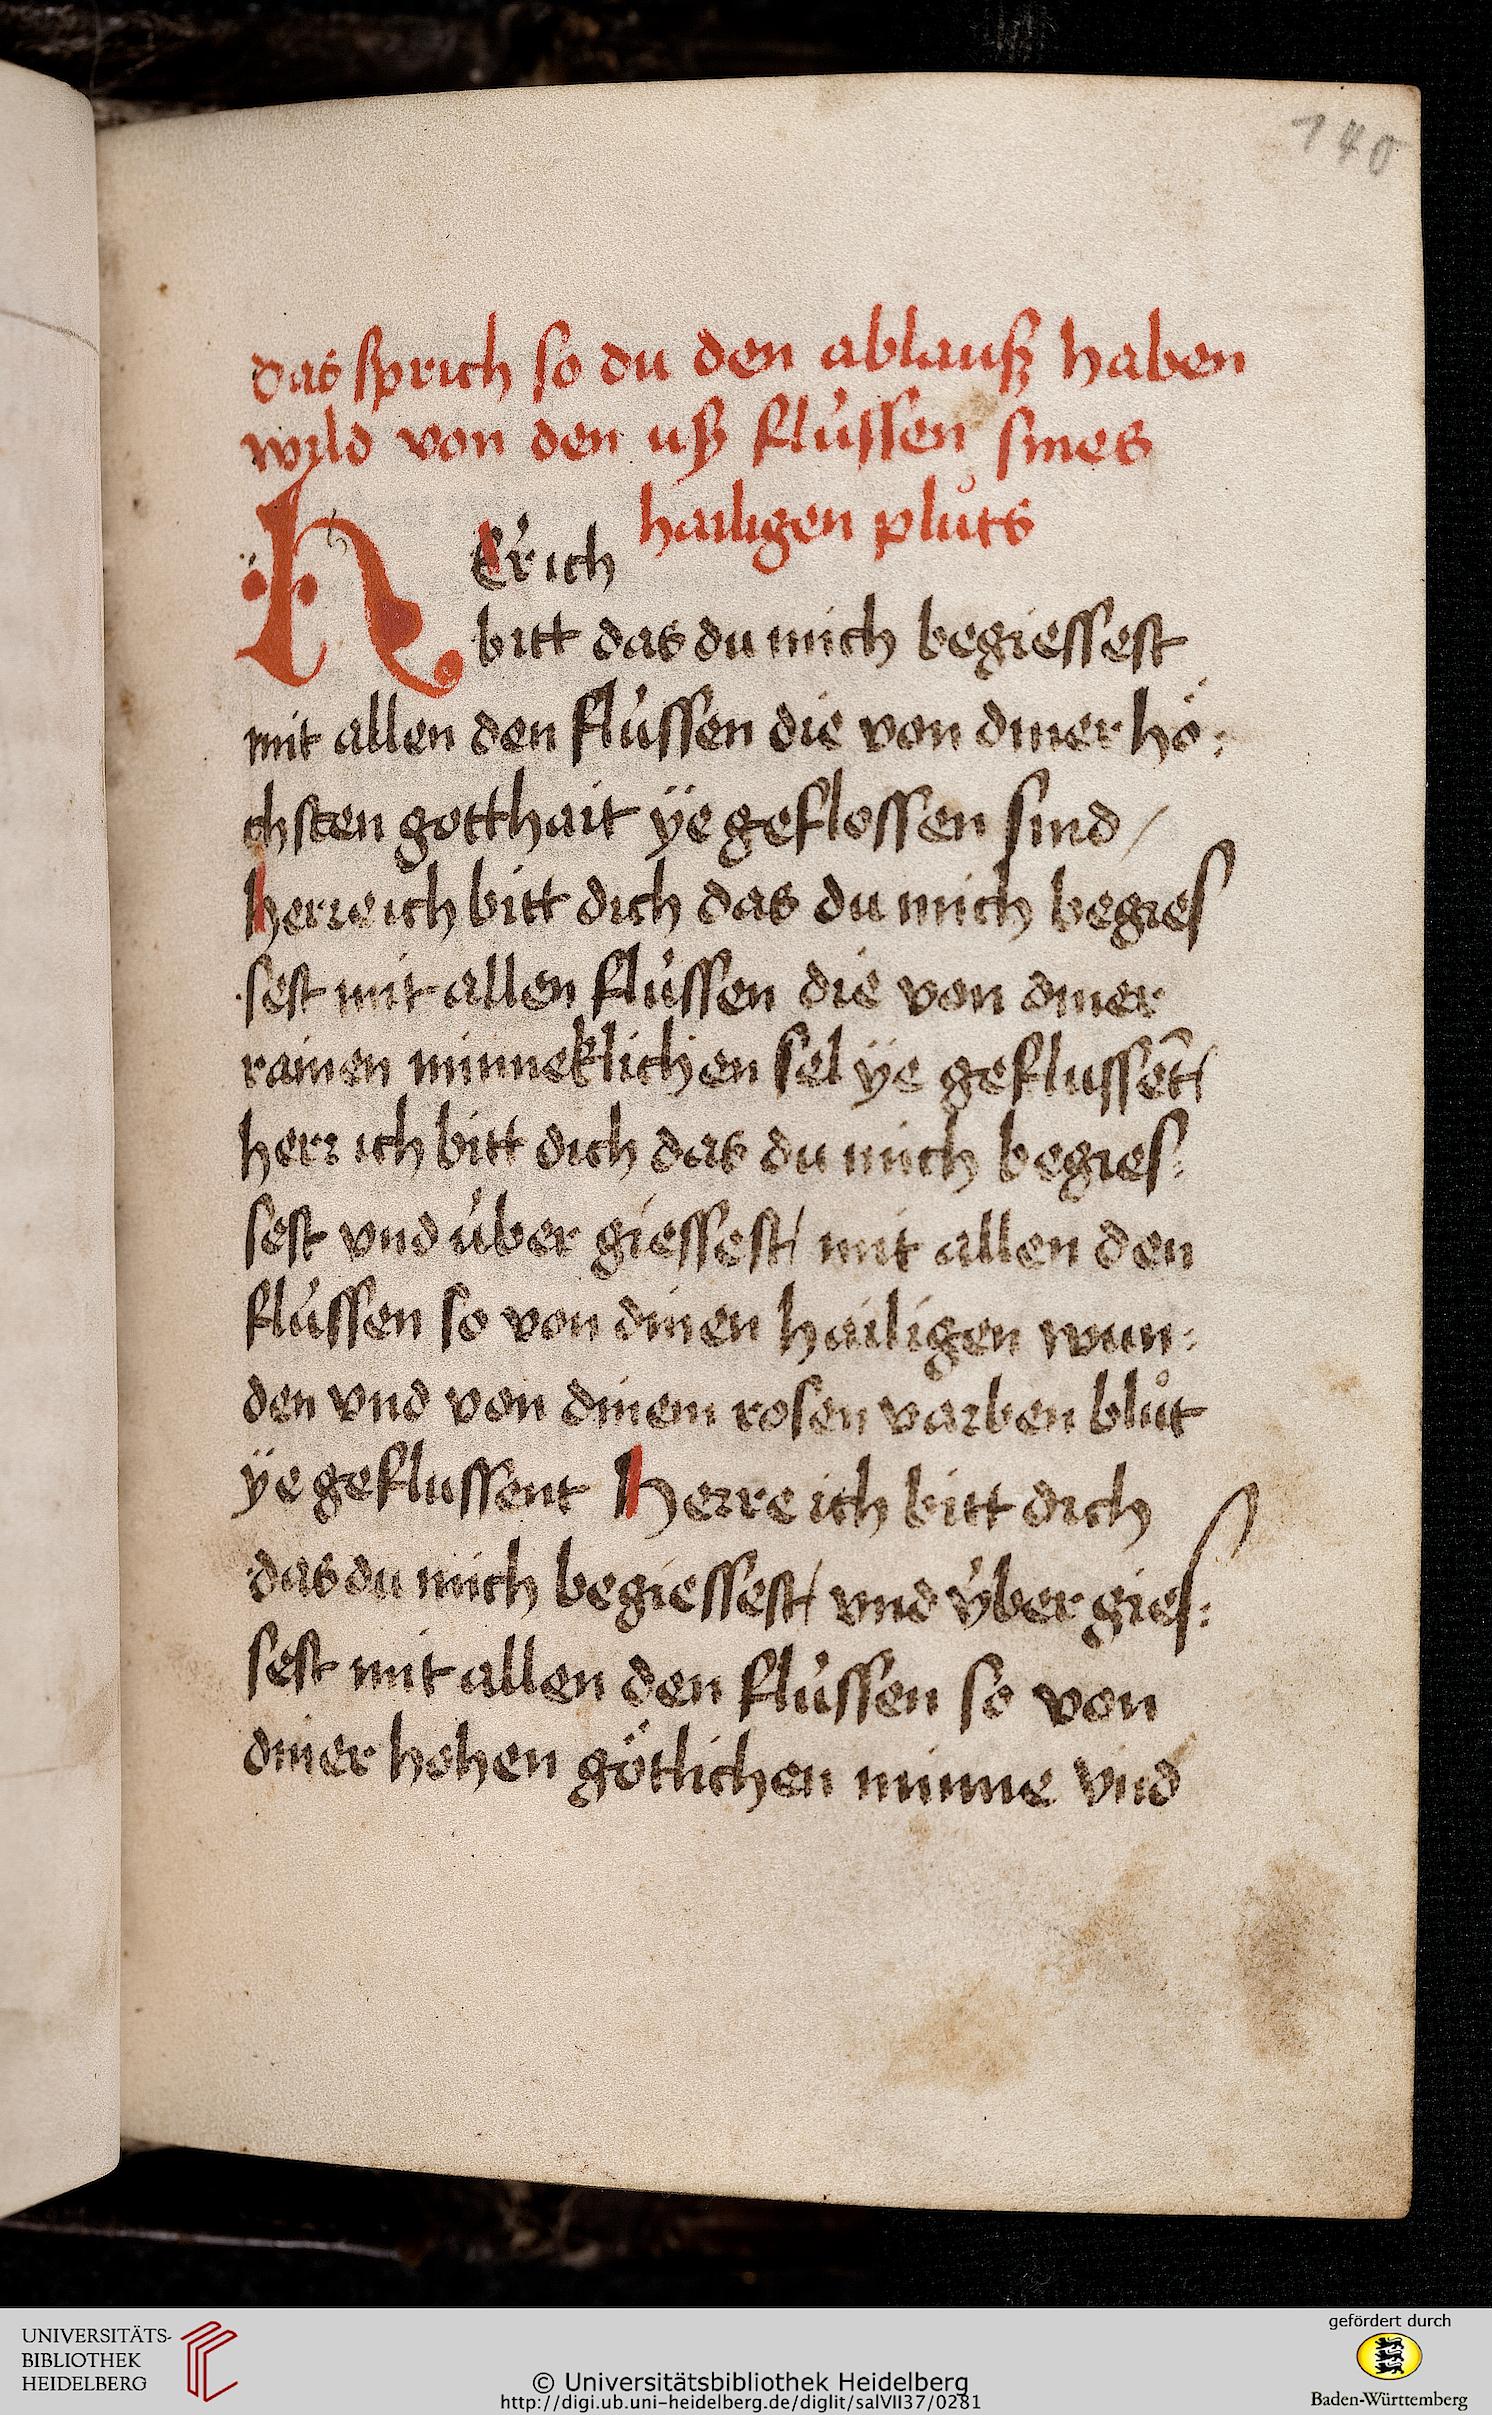 140
das sprich so du den ablauß haben
wyld von den uß flússen sines
hailigen plůts
HEr ich
bitt das du mich begiessest
mit allen den flússen die von diner hö:
chsten gotthait ÿe geflossen sind /
herre ich bitt dich das du mich begies
sest mit allen flússen die von diner
rainen minneklichen sel ÿe geflussēt /
herr ich bitt dich das du mich begies:
sest vnd úber giessest / mit allen den
flússen so von dinen hailigen wun:
den vnd von dinem rosen varben blůt
ÿe geflussent Herre ich bitt dich
das du mich begiessest / vnd v́ber gies:
sest mit allen den flússen so von
diner hohen götlichen minne vnd
UNIVERSITÄTS-
BIBLIOTHEK
HEIDELBERG
© Universitätsbibliothek Heidelberg
http://digi.ub.uni-heidelberg.de/diglit/salVII37/0281
gefördert durch
Baden-Württemberg